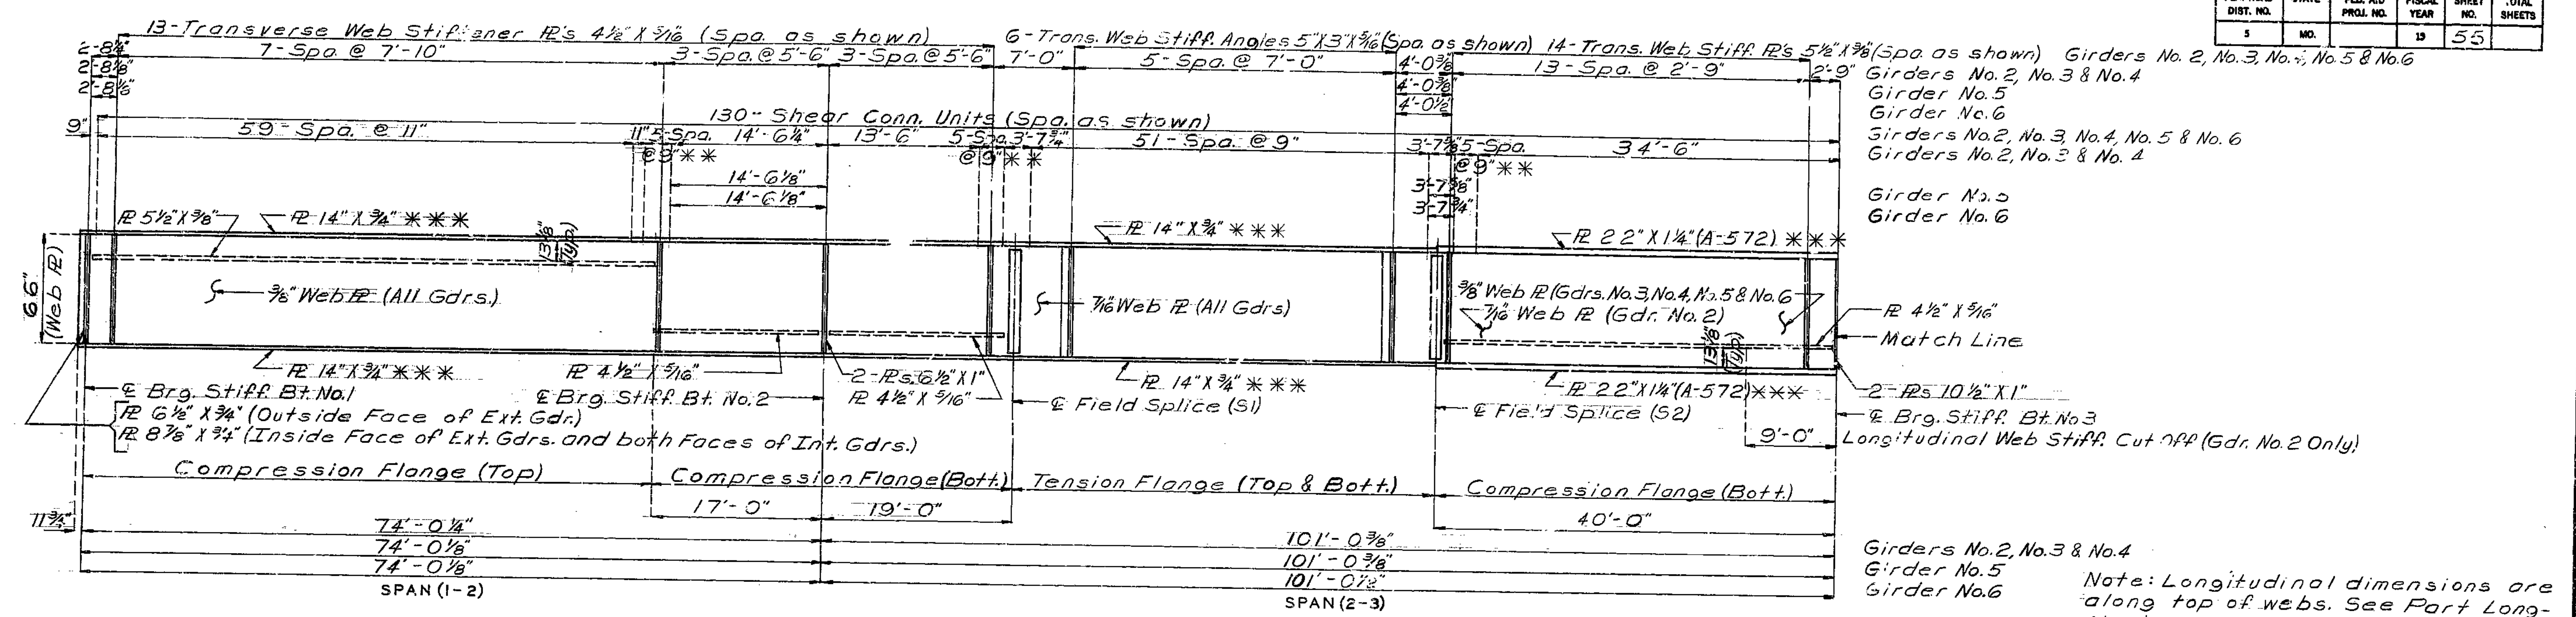 DIST. NO. STATE PROJ. NO. FISCAL YEAR SHEET NO. TOTAL SHEETS
5 MO. 19 55
13-Transverse Web Stiffener PL's 4½" X 5/16 (Spa. as shown)
6-Trans. Web Stiff. Angles 5"X3"X5/16"(Spa. as shown)
14-Trans. Web Stiff. PL's 5½"X3/8"(Spa. as shown)
Girders No. 2, No. 3, No. 4, No. 5 & No. 6
2-8¼" 7-Spa. @ 7'-10" 3-Spa. @ 5'-6" 3-Spa. @ 5'-6" 7'-0" 5-Spa. @ 7'-0" 4'-0 3/8" 13-Spa. @ 2'-9" 2'-9" Girders No. 2, No. 3 & No. 4
2'-8⅛" 4'-0 3/8" Girder No. 5
2'-8⅛" 4'-0½" Girder No. 6
130-Shear Conn. Units (Spa. as shown) Girders No. 2, No. 3, No. 4, No. 5 & No. 6
9" 59-Spa. @ 11" 11" 5-Spa. @ 9"** 14'-6¼" 13'-6" 5-Spa. @ 9"** 3'-7¾" 51-Spa. @ 9" 5-Spa. @ 9"** 34'-6" Girders No. 2, No. 3 & No. 4
14'-6⅛" 3'-7⅝" Girder No. 5
14'-6⅛" 3'-7¾" Girder No. 6
PL 5½"X3/8" PL 14"X¾"*** PL 14"X¾"*** PL 22"X1¼"(A-572)***
13⅛" (Typ.)
66" (Web PL)
3/8" Web PL (All Gdrs.)
7/16" Web PL (All Gdrs)
3/8" Web PL (Gdrs. No. 3, No. 4, No. 5 & No. 6
7/16" Web PL (Gdr. No. 2)
13⅛" (Typ.)
PL 4½" X 5/16"
Match Line
PL 14"X¾"*** PL 4½" X 5/16" 2-PLs. 6½" X 1" PL 14"X¾"*** PL 22"X1¼"(A-572)*** 2-PLs 10½"X1"
PL 4½" X 5/16"
℄ Brg. Stiff. Bt. No. 1
℄ Brg. Stiff. Bt. No. 2
℄ Field Splice (S1)
℄ Field Splice (S2)
℄ Brg. Stiff. Bt. No 3
PL 6½" X ¾" (Outside Face of Ext. Gdr.)
PL 8⅞" X ¾" (Inside Face of Ext. Gdrs. and both Faces of Int. Gdrs.)
9'-0" Longitudinal Web Stiff. Cut Off (Gdr. No. 2 Only)
Compression Flange (Top) Compression Flange (Bott.) Tension Flange (Top & Bott.) Compression Flange (Bott.)
11¾" 17'-0" 19'-0" 40'-0"
74'-0¼" 101'-0 3/8" Girders No. 2, No. 3 & No. 4
74'-0⅛" 101'-0 3/8" Girder No. 5
74'-0⅛" 101'-0½" Girder No. 6
SPAN (1-2) SPAN (2-3)
Note: Longitudinal dimensions are
along top of webs. See Part Long-